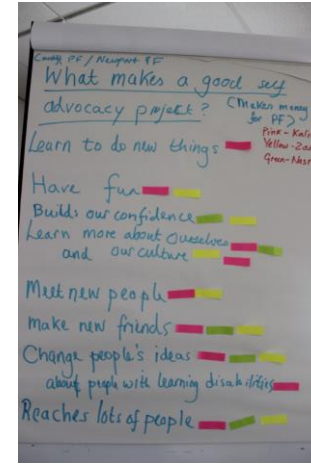 Cardiff PF / Newport PF
What makes a good self
advocacy project?
(Makes money
for PF)
Pink-
Yellow-
Green-
Learn to do new things
Have fun
Builds our confidence
Learn more about ourselves
and our culture
Meet new people
make new friends
Change people's ideas
about people with learning disabilities
Reaches lots of people